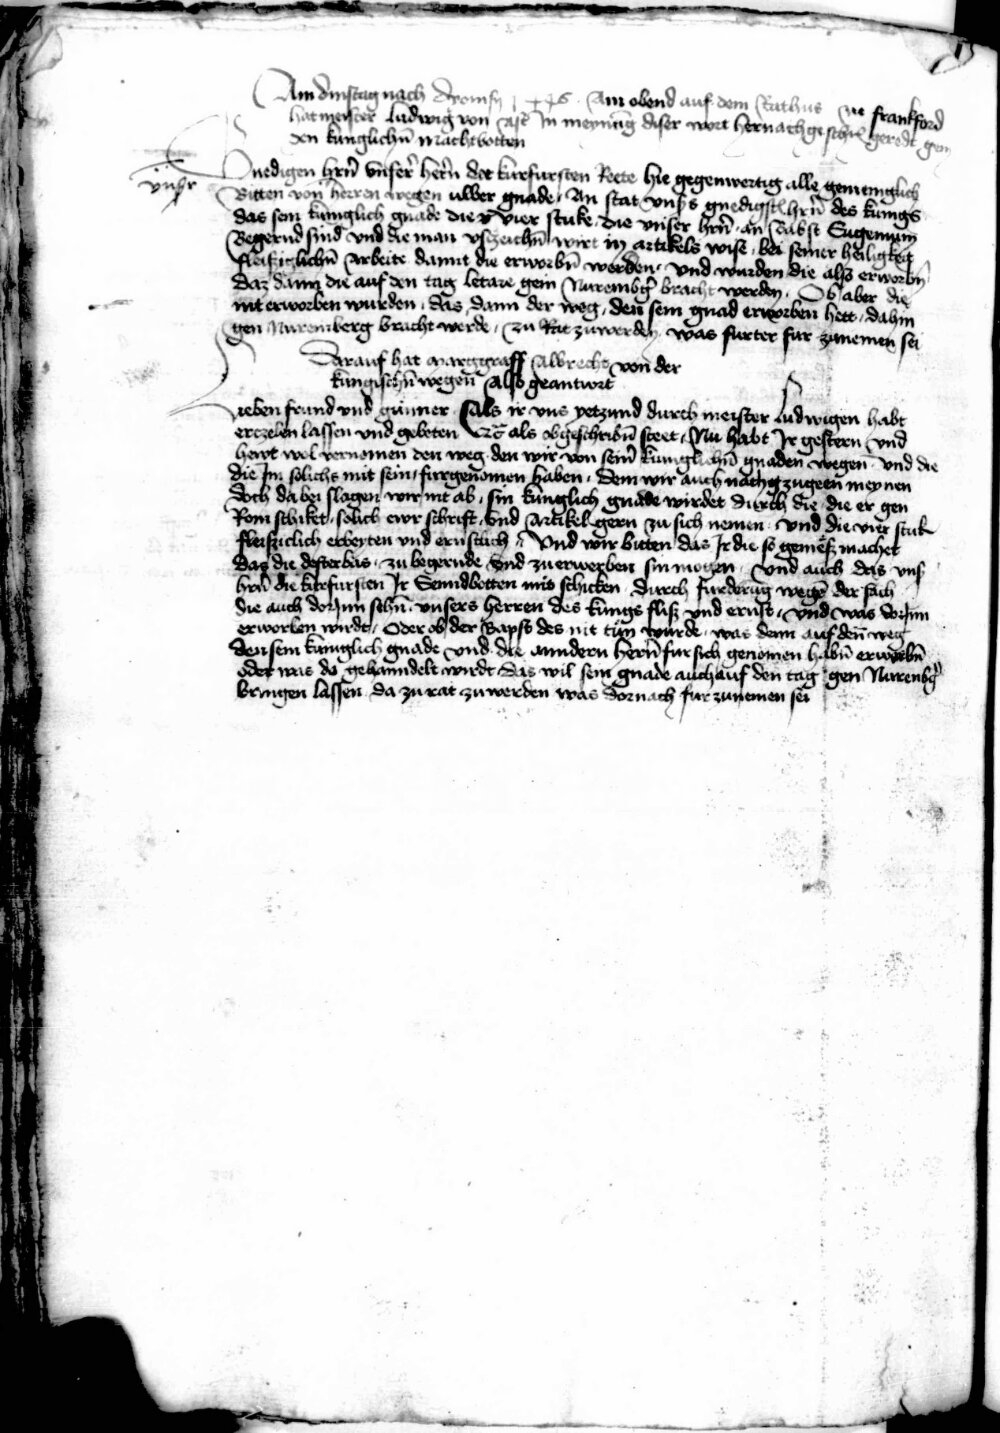 Am dinstag nach Dionisy Am obend auf dem Rathus zu frankford
hat meister Ludwig von Ast In meynung diser wort hernachgeschr. geredt gein
den kunglichn machtbotten
Gnedigen hrn unser hern der kurfursten Reete hie gegenwertig alle gemeinglich
unßr
Bitten von Irer herren wegen uwer gnade, An stat unsers gnedigsten hrn des kungs
das sein kuniglich gnade die vier stuke, die unser hrn, an Babst Eugenium
Begernd sind und die man uszeichn wirt in artikels wise, bei seiner heiligkeit
fleissiclichn arbeite damit die erworbn werden, und wurden die also erworbn
daz dann die auf den tag letare gein Nurembg bracht werden, Ob aber die
nit erworben wurden, das dann der weg, den sein gnad erworben hett, dahin
gen Nuremberg bracht werde, zu Rat zuwerden was furter fur zunemen sei
Darauf hat marggraff Albrecht von der
kungischn wegen also geantwort
Lieben frund und gunner Als ir uns yetzund durch meister Ludwigen habt
erczelen lassen und gebeten etc als obgeschribn steet, Nu habt Ir gestern und
hewt wol vernomen den weg den wir von seinr kuniglichn gnaden wegen und die
die Im solichs mit sein furgenomen haben, dem wir auch nachzugeen meynen
doch da bei slagen wir nit ab, sin kunglich gnade wirdet durch die, die er gen
Rom schiket, solich ewr schrift und Artikel gern zu sich nemen und die vier stuk
fleissiclich erbeyten und ernstlich, Und wir biten das Ir die so gemess machet
das die dester bas, zu begernde und zu erwerben sin mogen, und auch das unsr
hrn die kurfursten Ir Senndbotten mit schicken durch furderung wegen der sach
die auch dorInn sehn unsers herren des kungs flisz und ernst, und was dorInn
erworben wirdt, Oder ob der Bapst des nit tun wurde, was denn auf den weg
den sein kuniglich gnade und die anndern hern fur sich genomen habn erworbn
oder was do gehanndelt wirdt das wil sein gnade auch auf den tag gen Nurenbg
bringen lassen, da zu rat zu werden was dornach fur zunemen sei